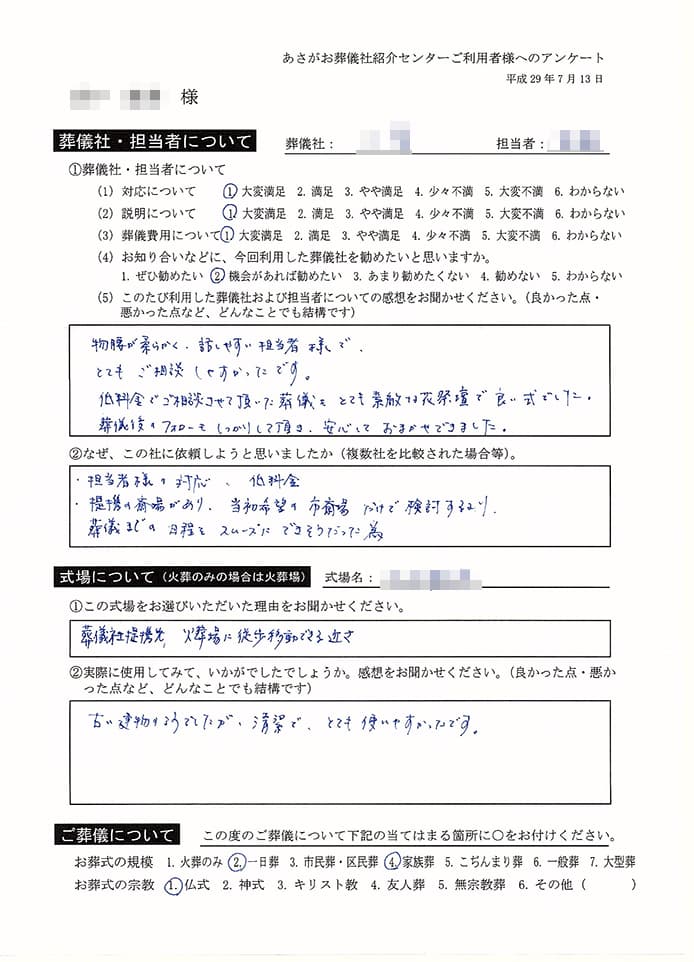 あさがお葬儀社紹介センターご利用者様へのアンケート
平成29年7月13日
様
葬儀社・担当者について 葬儀社： 担当者：
①葬儀社・担当者について
(1) 対応について ①大変満足 2. 満足 3. やや満足 4. 少々不満 5. 大変不満 6. わからない
(2) 説明について ①大変満足 2. 満足 3. やや満足 4. 少々不満 5. 大変不満 6. わからない
(3) 葬儀費用について①大変満足 2. 満足 3. やや満足 4. 少々不満 5. 大変不満 6. わからない
(4) お知り合いなどに、今回利用した葬儀社を勧めたいと思いますか。
1. ぜひ勧めたい ②機会があれば勧めたい 3. あまり勧めたくない 4. 勧めない 5. わからない
(5) このたび利用した葬儀社および担当者についての感想をお聞かせください。（良かった点・
悪かった点など、どんなことでも結構です）
物腰が柔らかく、話しやすい担当者様で、
とてもご相談しやすかったです。
低料金でご相談させて頂いた葬儀もとても素敵な花祭壇で良い式でした。
葬儀後のフォローもしっかりして頂き、安心しておまかせできました。
②なぜ、この社に依頼しようと思いましたか（複数社を比較された場合等）。
・担当者様の対応、低料金
・提携の斎場があり、当初希望の市斎場だけで検討するより、
葬儀までの日程もスムーズにできそうだった為
式場について（火葬のみの場合は火葬場） 式場名：
①この式場をお選びいただいた理由をお聞かせください。
葬儀社提携先、火葬場に徒歩移動できる近さ
②実際に使用してみて、いかがでしたでしょうか。感想をお聞かせください。（良かった点・悪か
った点など、どんなことでも結構です）
古い建物のようでしたが、清潔で、とても使いやすかったです。
ご葬儀について この度のご葬儀について下記の当てはまる箇所に○をお付けください。
お葬式の規模 1. 火葬のみ ②一日葬 3. 市民葬・区民葬 ④家族葬 5. こぢんまり葬 6. 一般葬 7. 大型葬
お葬式の宗教 ①仏式 2. 神式 3. キリスト教 4. 友人葬 5. 無宗教葬 6. その他（ ）